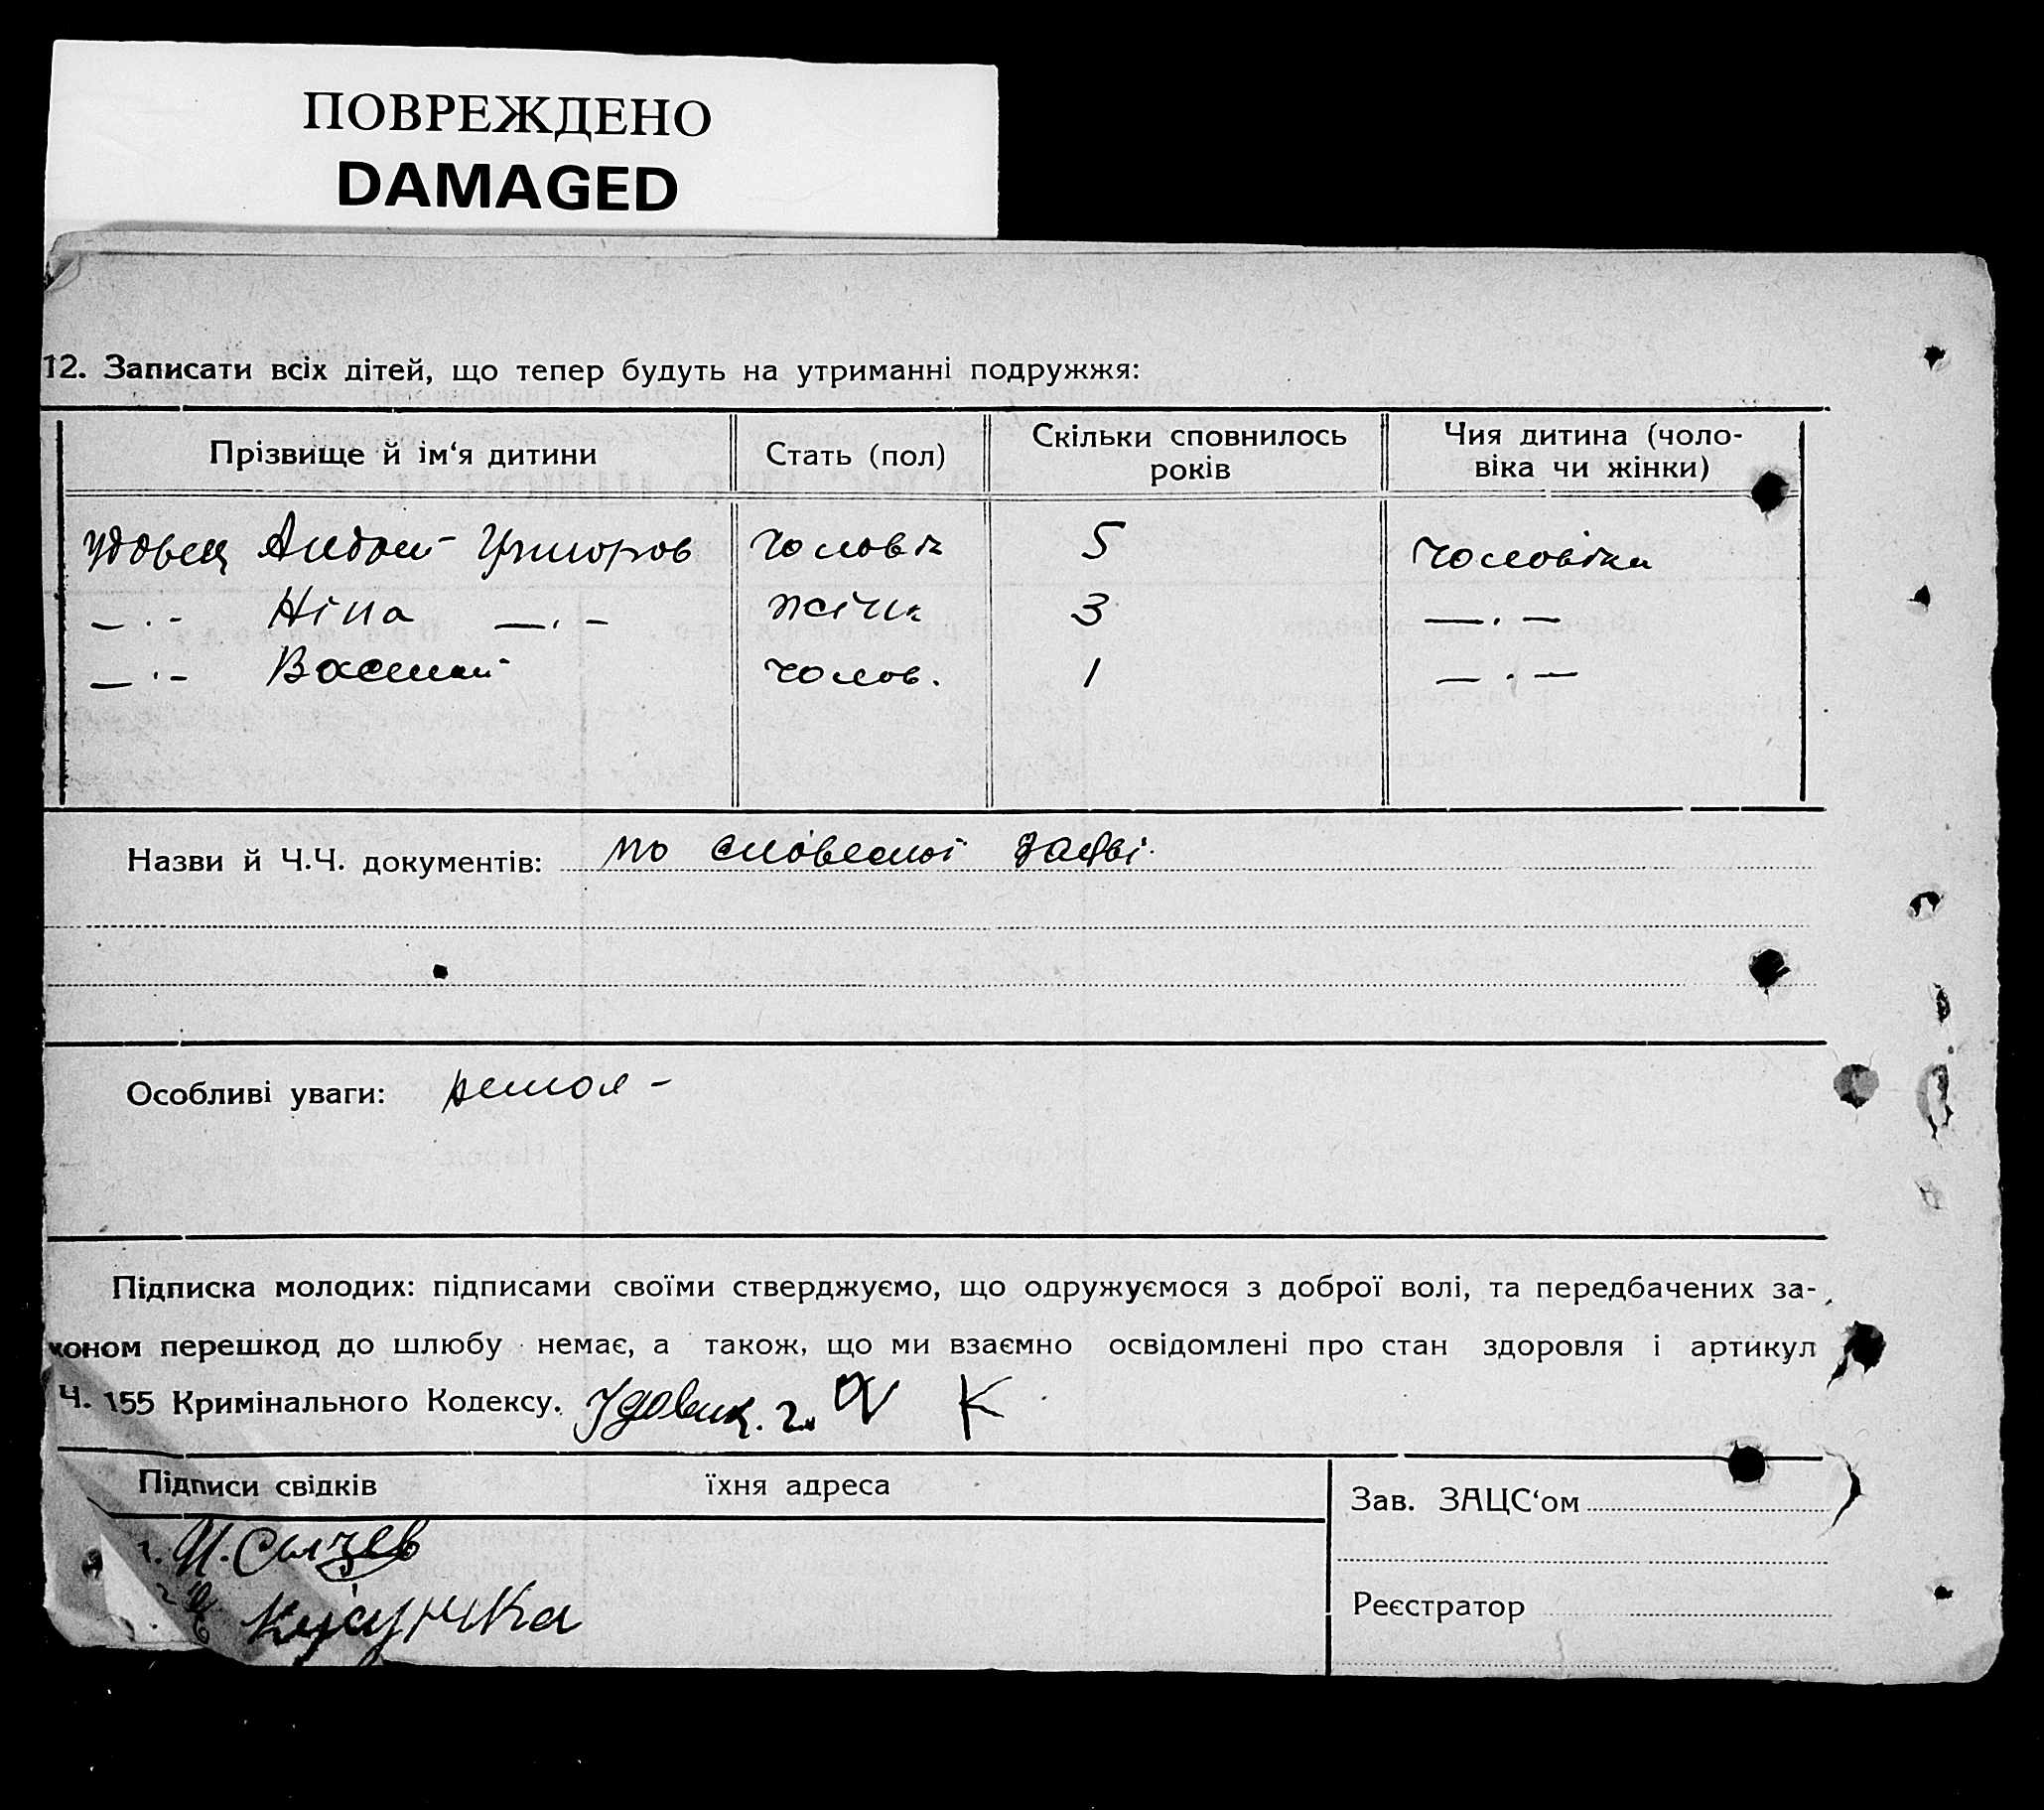 ПОВРЕЖДЕНО
DAMAGED
12. Записати всіх дітей, що тепер будуть на утриманні подружжя:
Прізвище й ім‘я дитини Стать (пол) Скільки сповнилось років Чия дитина (чоловіка чи жінки)
Удовец Андрей 5 чоловіка
—·- Ніна —·- жінк 3 —·—
—·- Василий чолов. 1 —·—
Назви й Ч.Ч. документів: по словесної заяві.
Особливі уваги:
Підписка молодих: підписами своїми стверджуємо, що одружуємося з доброї волі, та передбачених за-
коном перешкод до шлюбу немає, а також, що ми взаємно освідомлені про стан здоровля і артикул
Ч. 155 Кримінального Кодексу. К
Підписи свідків їхня адреса
Зав. ЗАЦС‘ом
Реєстратор